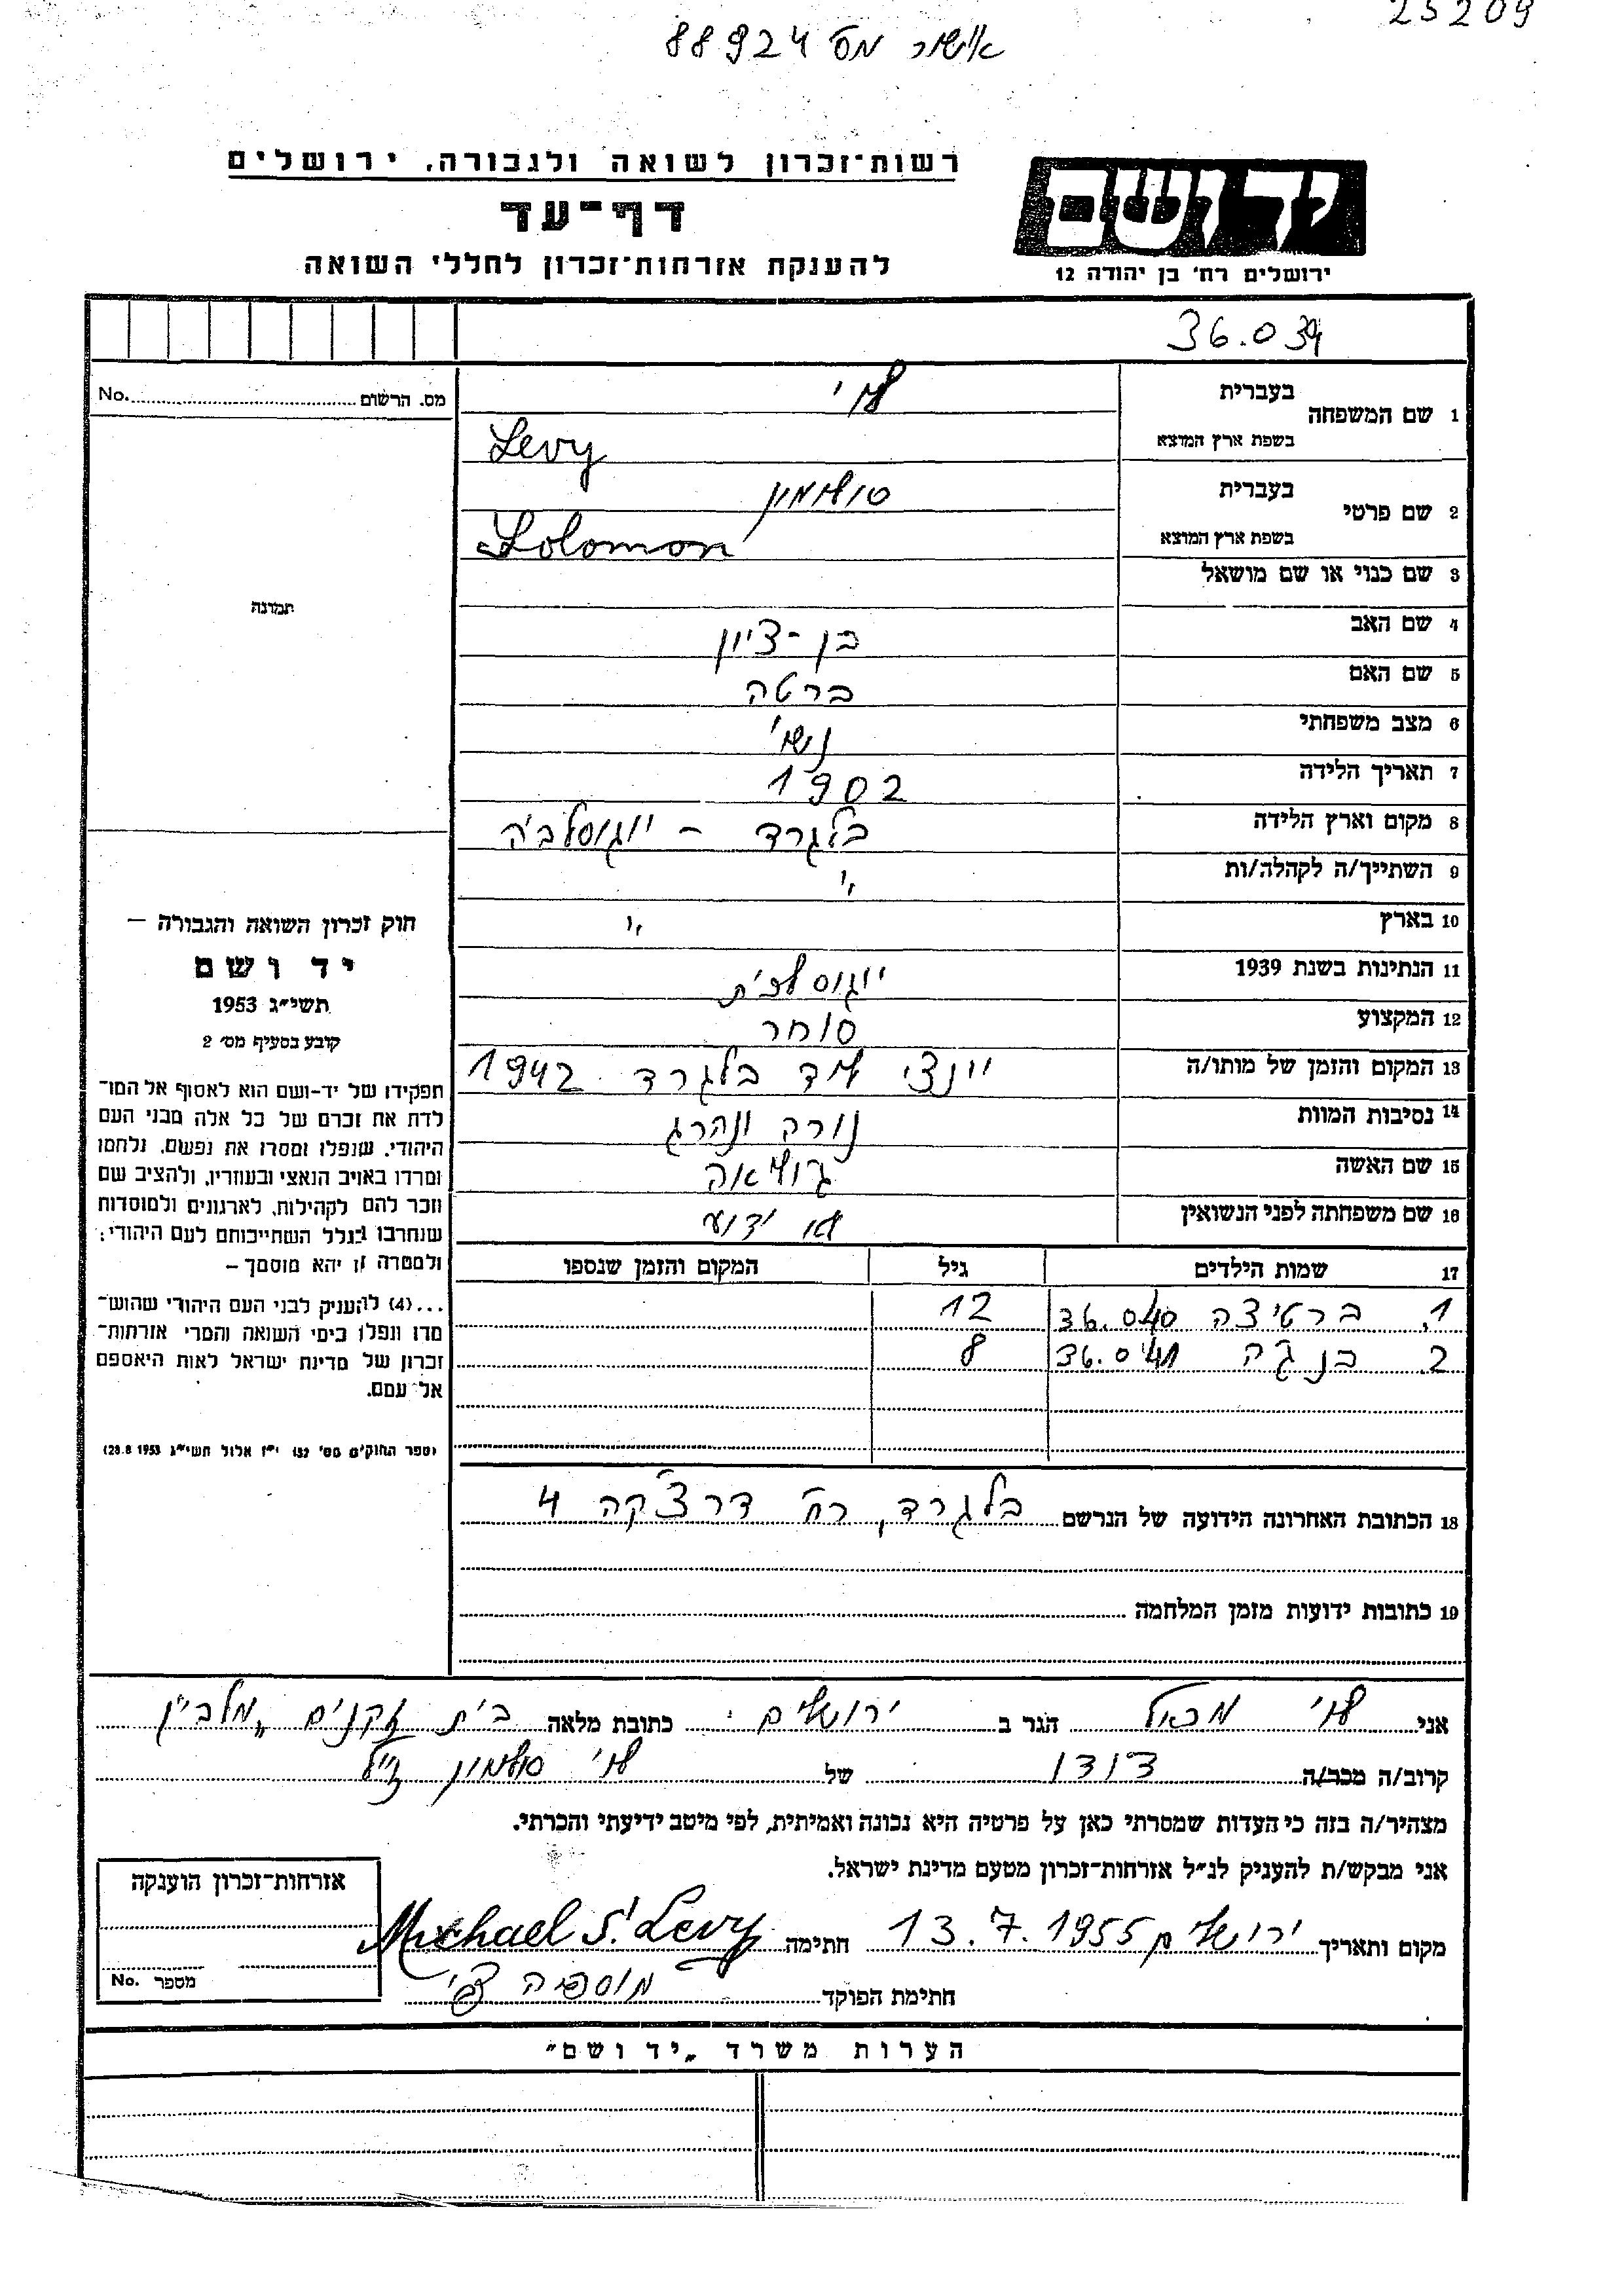 25209
אישור מס 88924
רשות־זכרון לשואה ולגבורה, ירושלים
דף־עד
להענקת אזרחות־זכרון לחללי השואה
יד ושם
ירושלים רח׳ בן יהודה 12
36.039
מס. הרשום No.
1 שם המשפחה
בעברית לוי
בשפת ארץ המוצא Levy
2 שם פרטי
בעברית סולומון
בשפת ארץ המוצא Solomon
3 שם כנוי או שם מושאל
4 שם האב בן-ציון
5 שם האם ברטה
6 מצב משפחתי נשוי
7 תאריך הלידה 1902
8 מקום וארץ הלידה בלגרד – יוגוסלביה
9 השתייך/ה לקהלה/ות ״
10 בארץ ״
11 הנתינות בשנת 1939 יוגוסלבית
12 המקצוע סוחר
13 המקום והזמן של מותו/ה יינצי ליד בלגרד 1942
14 נסיבות המוות נורה ונהרג
15 שם האשה
16 שם משפחתה לפני הנשואין לא ידוע
17 שמות הילדים גיל המקום והזמן שנספו
1. ברטיצה 36.040 12
2. 36.041 8
18 הכתובת האחרונה הידועה של הנרשם בלגרד, רח׳ 4
19 כתובות ידועות מזמן המלחמה
תמונה
חוק זכרון השואה והגבורה –
יד ושם
תשי״ג 1953
קובע בסעיף מס׳ 2
תפקידו של יד-ושם הוא לאסוף אל המו־
לדת את זכרם של כל אלה מבני העם
היהודי, שנפלו ומסרו את נפשם, נלחמו
ומרדו באויב הנאצי ובעוזריו, ולהציב שם
וזכר להם לקהילות, לארגונים ולמוסדות
שנחרבו בגלל השתייכותם לעם היהודי;
ולמטרה זו יהא מוסמך –
...(4) להעניק לבני העם היהודי שהוש־
מדו ונפלו בימי השואה והמרי אזרחות־
זכרון של מדינת ישראל לאות היאספם
אל עמם.
(ספר החוקים מס׳ 132 י״ז אלול תשי״ג 28.8.1953)
אני לוי מכאל הגר ב ירושלים כתובת מלאה בית זקנים „מלבין
קרוב/ה מכר/ה דודו של לוי סולומון ז״ל
מצהיר/ה בזה כי העדות שמסרתי כאן על פרטיה היא נכונה ואמיתית, לפי מיטב ידיעתי והכרתי.
אני מבקש/ת להעניק לנ״ל אזרחות־זכרון מטעם מדינת ישראל.
מקום ותאריך ירושלים 13.7.1955 חתימה Michael S. Levy
חתימת הפוקד מוספיה צבי
אזרחות־זכרון הוענקה
מספר No.
הערות משרד „יד ושם״